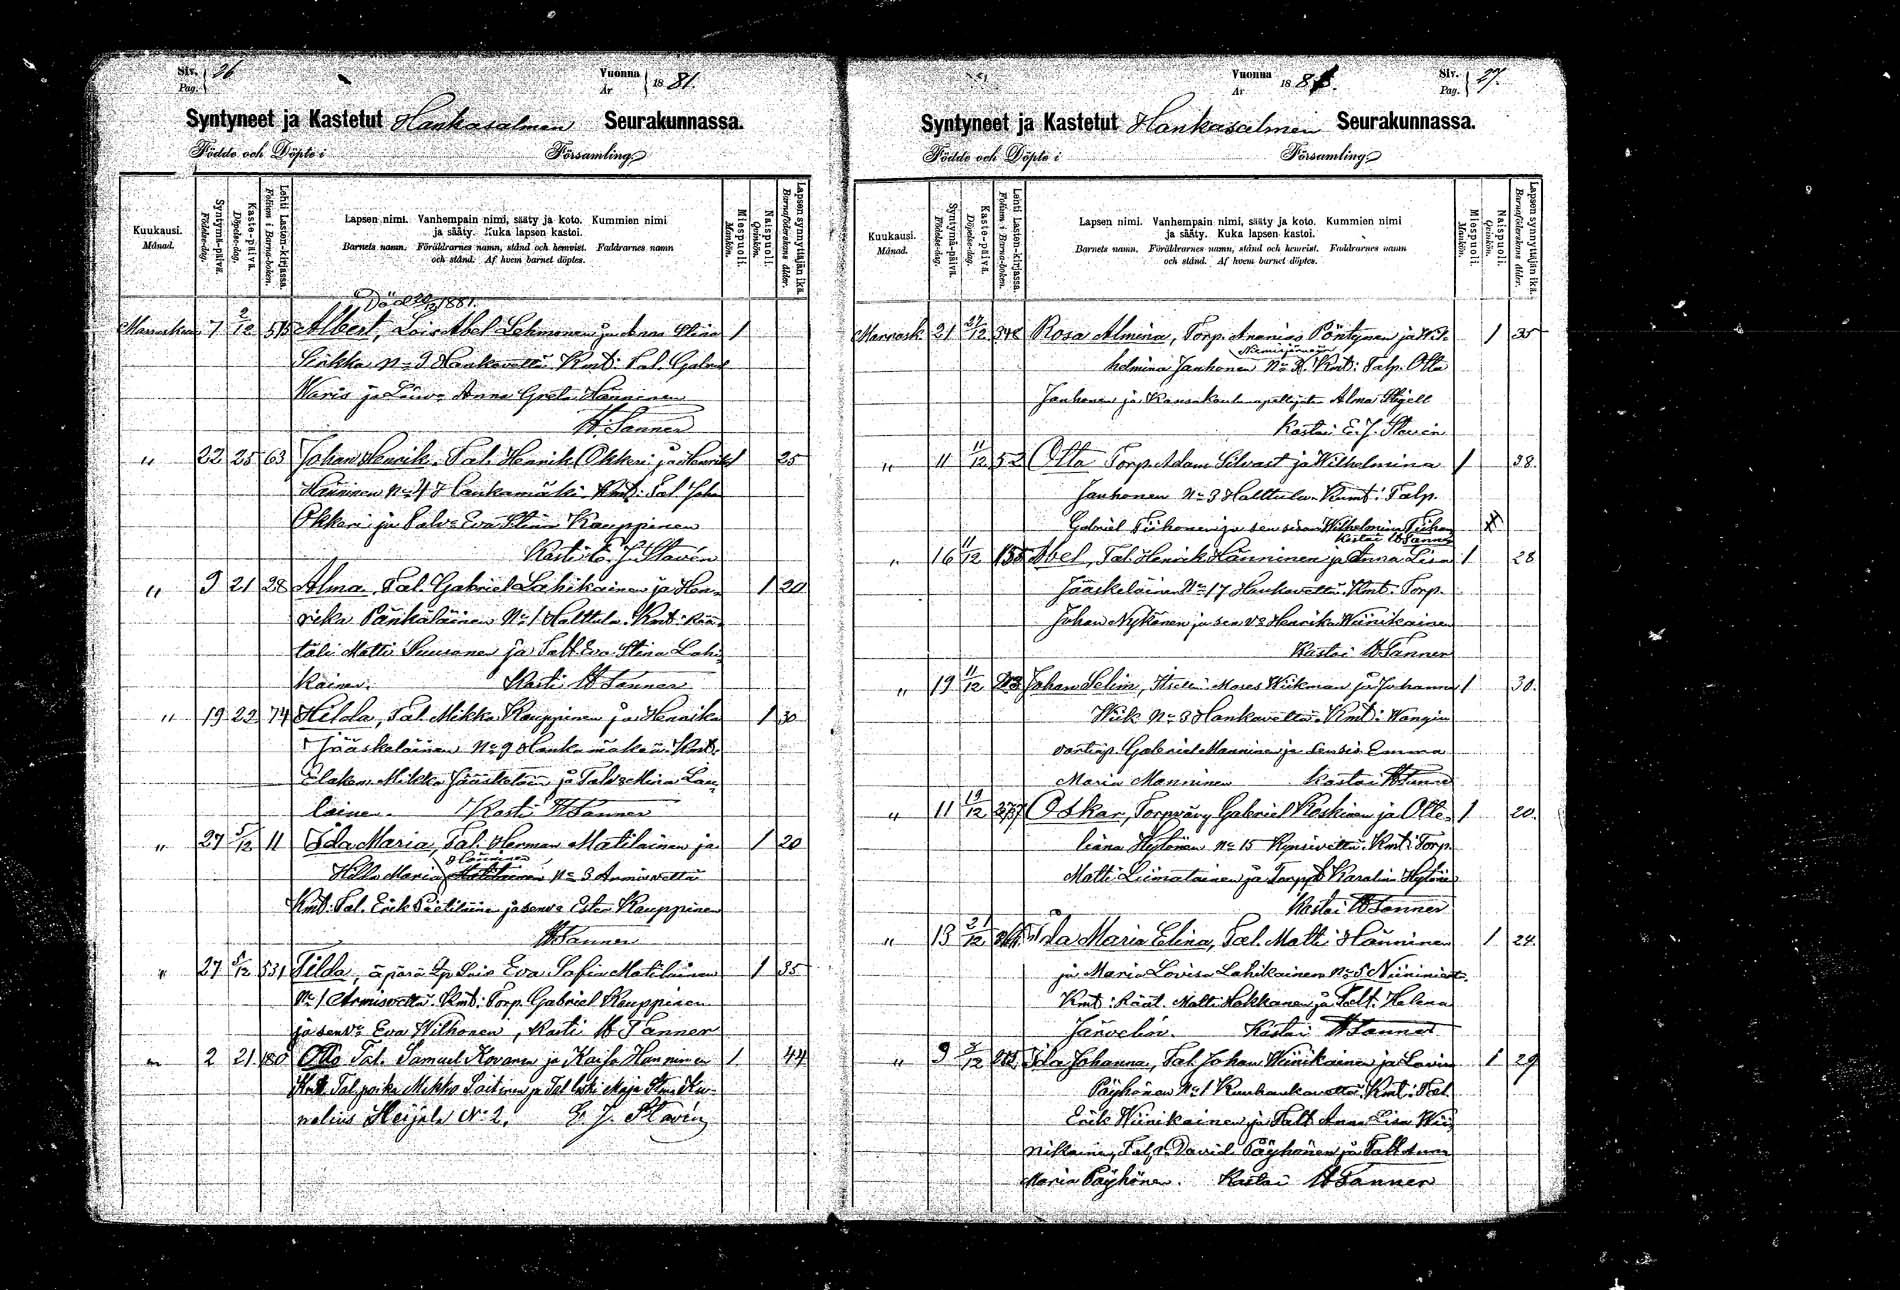 Siv. 26
Pag.
Vuonna 1881.
År
Syntyneet ja Kastetut Hankasalmen Seurakunnassa.
Födde och Döpte i Församling
Kuukausi.
Månad.
Syntymä-päivä.
Födelse-dag.
Kaste-päivä.
Döpelse-dag.
Lehti Lasten-kirjassa.
Folium i Barna-boken.
Lapsen nimi. Vanhempain nimi, sääty ja koto. Kummien nimi
ja sääty. Kuka lapsen kastoi.
Barnets namn. Föräldrarnes namn, stånd och hemvist. Faddrarnes namn
och stånd. Af hvem barnet döptes.
Miespuoli.
Mankön.
Naispuoli.
Qvinkön.
Lapsen synnyttäjän ikä.
Barnaföderskans ålder.
Död 1881.
Marraskuu 7 2/12 515 Albert, Lois Abel Lehmonen ja Anna Stina 1
Sirkka No 9 Hankavetta Kmt: Tal. Gabriel
Waris ja Anna Greta Hänninen
W. Tanner
" 22 25 63 Johan Henrik. Tal. Henrik Okkeri ja Henrika 1 25
Hänninen No 4 Hankamäki. Kmt: Tal. Joh.
Okkeri ja Talv: Eva Stina Kauppinen
Kasti E. J. Stavén
" 9 21 28 Alma, Tal. Gabriel Lahikainen ja Hen- 1 20
rika Pänkäläinen No 1 Halttula. Kmt: Rää-
täli Matti Suusanen ja Talt. Eva Stina Lahi-
kainen. Kasti W Tanner
" 19 22 74 Hilda, Tal. Mikko Kauppinen ja Henrika 1 30
Jääskeläinen No 9 Hankamäkeä. Kmt:
Mikko Jääskeläin ja Talv: Mina Lau-
lainen. Kasti W Tanner
" 27 5/12 11 Ida Maria, Tal. Herman Matilainen ja 1 20
Hänninen
Hilda Maria No 3 Armisvetta
Kmt: Tal. Erik Pietiläine ja senv: Ester Kauppinen
W Tanner
" 27 5/12 531 Tilda, äpärä Lois Eva Sofia Matilainen 1 35
No 1 Armisvetta. Kmt: Torp. Gabriel Kauppinen
ja senv: Eva Wilhonen, Kasti W Tanner
" 2 21 180 Otto Tal. Samuel Kovanen ja Kaisa Hänninen 1 44
Kmt. Tal. poika Mikko Laitinen ja Tal. Maja Stina Ku-
nelius Heijala No 2. E. J. Stavén
Vuonna 188
År
Siv. 27.
Pag.
Syntyneet ja Kastetut Hankasalmen Seurakunnassa.
Födde och Döpte i Församling
Kuukausi.
Månad.
Syntymä-päivä.
Födelse-dag.
Kaste-päivä.
Döpelse-dag.
Lehti Lasten-kirjassa.
Folium i Barna-boken.
Lapsen nimi. Vanhempain nimi, sääty ja koto. Kummien nimi
ja sääty. Kuka lapsen kastoi.
Barnets namn. Föräldrarnes namn, stånd och hemvist. Faddrarnes namn
och stånd. Af hvem barnet döptes.
Miespuoli.
Mankön.
Naispuoli.
Qvinkön.
Lapsen synnyttäjän ikä.
Barnaföderskans ålder.
Marrask. 21 27/12 348 Rosa Almina, Torp. Ananias Pöntynen ja Wil- 1 35
Niemisjärveä
helmina Janhonen No Kmt: Talp. Otto
Janhonen ja Kansakoulu opettaja Alma Stigell
Kastoi E. J. Stavén
" 11 11/12 52 Otto Torp. Adam Silvast ja Wilhelmina 1 38.
Janhonen No 3 Halttula. Kmt: Talp.
Gabriel Tiihonen ja sen sisar Wilhelmina Tiihon
Kastoi W Tanner
" 16 11/12 155 Abel, Tal. Henrik Hänninen ja Anna Lisa 1 28
Jääskeläinen No 17 Hankavetta. Kmt: Torp.
Johan Nykänen ja sen v: Henrika Wiinikainen
Kastoi W Tanner
" 19 11/12 Johan Selim, Moses Wiikman ja Johanna 1 30.
Wiik No 3 Hankavetta. Kmt: Wangin
vartija. Gabriel Manninen ja sen sis. Emma
Maria Manninen Kastoi W Tanner
" 11 19/12 Oskar, Torpvävy Gabriel Koskinen ja Otte- 1 20.
liana Hytönen No 15 Kynsivettä. Kmt: Torp.
Matti Liimatainen ja Torpt. Karolin Hytöne
Kastoi W Tanner
" 13 21/12 Ida Maria Elina, Tal. Matti Hänninen 1 24.
ja Maria Lovisa Lahikainen No 5
Kmt: Räät. Matti Hokkanen ja Talt. Helena
Järvelin. Kastoi W Tanner
" 9 3/12 Ida Johanna, Tal. Johan Wiinikainen ja Lovisa 1 29
Päyhönen No 1 Kuuhankavetta. Kmt: Tal.
Erik Wiinikainen ja Talt. Anna Lisa Wii-
nikaine, Tal. v. David Päyhönen ja Talt. Anna
Maria Päyhönen. Kastoi W Tanner